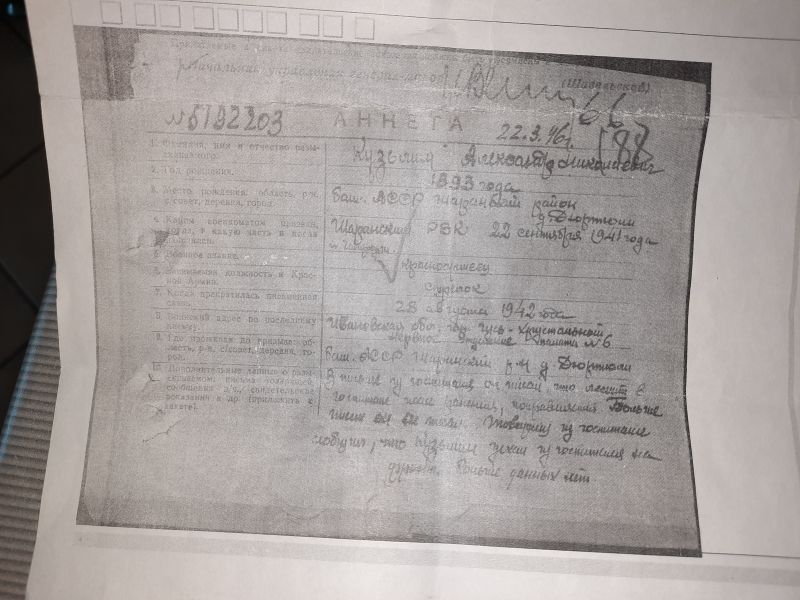 (Шавельсков)
№5192203 АНКЕТА 22.3.46г. 66
188
1. Фамилия, имя и отчество разыскиваемого. Кузьмин Александр Николаевич
2. Год рождения. 1893 года
3. Место рождения: область, р-н, с/совет, деревня, город. Баш. АССР Шаранский район
д. Дюртюли
4. Каким военкоматом призван, когда, в какую часть и когда Шаранский РВК 22 сентября 1941 года
5. Военное звание. красноармеец
6. Занимаемая должность в Красной Армии. стрелок
7. Когда прекратилась письменная связь. 28 августа 1942 года
8. Воинский адрес по последнему письму. Ивановская обл. гор. Гусь-Хрустальный
Нервное отделение палата №6
9. Где проживал до призыва: область, р-н, с/совет, деревня, город. Баш. АССР Шаранский р-н д. Дюртюли
10. Дополнительные данные о разыскиваемом: письма товарищей, сообщения в/ч, свидетельские показания и др. (приложить к анкете). В письме из госпиталя он писал что лежит в
госпитале после ранения, поправляется. Больше
писем от него Товарищ из госпиталя
сообщил, что Кузьмин уехал из госпиталя на
фронт. Больше данных нет